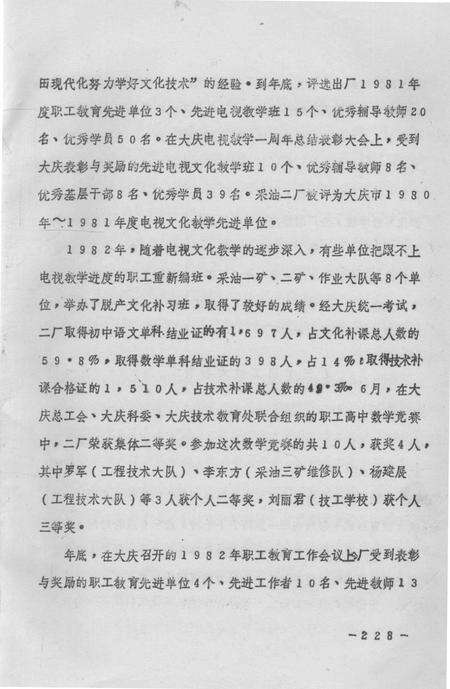 田现代化努力学好文化技术”的经验。到年底，评选出厂1981年
度职工教育先进单位3个、先进电视教学班15个、优秀辅导教师20
名、优秀学员50名。在大庆电视教学一周年总结表彰大会上，受到
大庆表彰与奖励的先进电视文化教学班10个、优秀辅导教师8名、
优秀基层干部8名、优秀学员39名。采油二厂被评为大庆市1980
年～1981年度电视文化教学先进单位。
1982年，随着电视文化教学的逐步深入，有些单位把跟不上
电视教学进度的职工重新编班。采油一矿、二矿、作业大队等8个单
位，举办了脱产文化补习班，取得了较好的成绩。经大庆统一考试，
二厂取得初中语文单科结业证的有1，697人，占文化补课总人数的
59·8%，取得数学单科结业证的398人，占14%；取得技术补
课合格证的1，510人，占技术补课总人数的 6月，在大
庆总工会、大庆科委、大庆技术教育处联合组织的职工高中数学竞赛
中，二厂荣获集体二等奖。参加这次数学竞赛的共10人，获奖4人，
其中罗军（工程技术大队）、李东方（采油三矿维修队）、杨建展
（工程技术大队）等3人获个人二等奖，刘丽君（技工学校）获个人
三等奖。
年底，在大庆召开的1982年职工教育工作会议上厂受到表彰
与奖励的职工教育先进单位4个、先进工作者10名、先进教师13
－228－